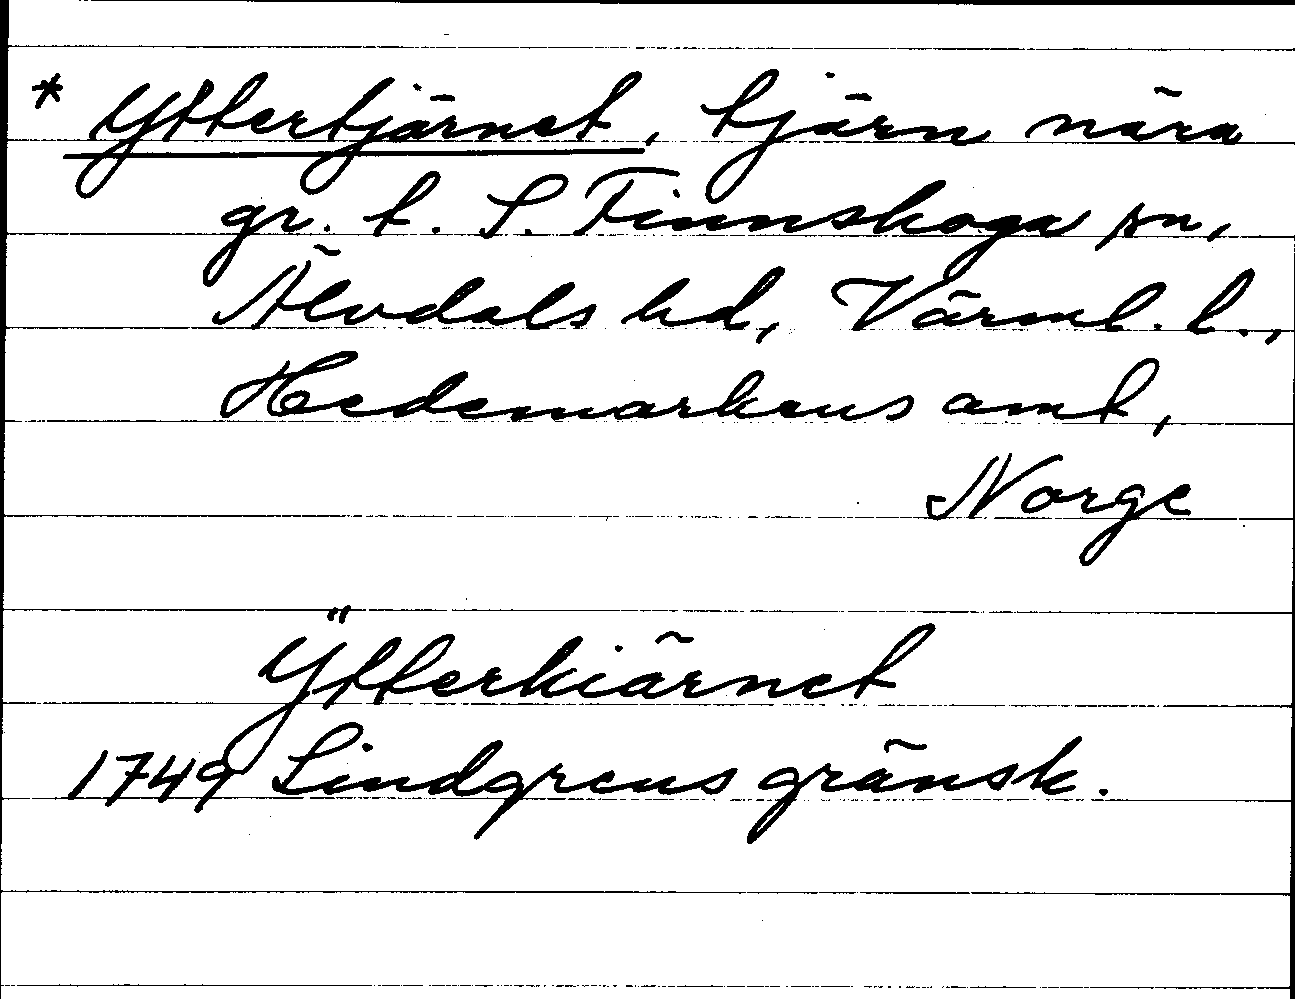 * Yttertjärnet, tjärn nära
gr. t. S. Finnskoga sn,
Älvdals hd, Värml. l.,
Hedemarkens amt,
Norge
Ÿtterkiärnet
1749 Lindgrens gränsk.